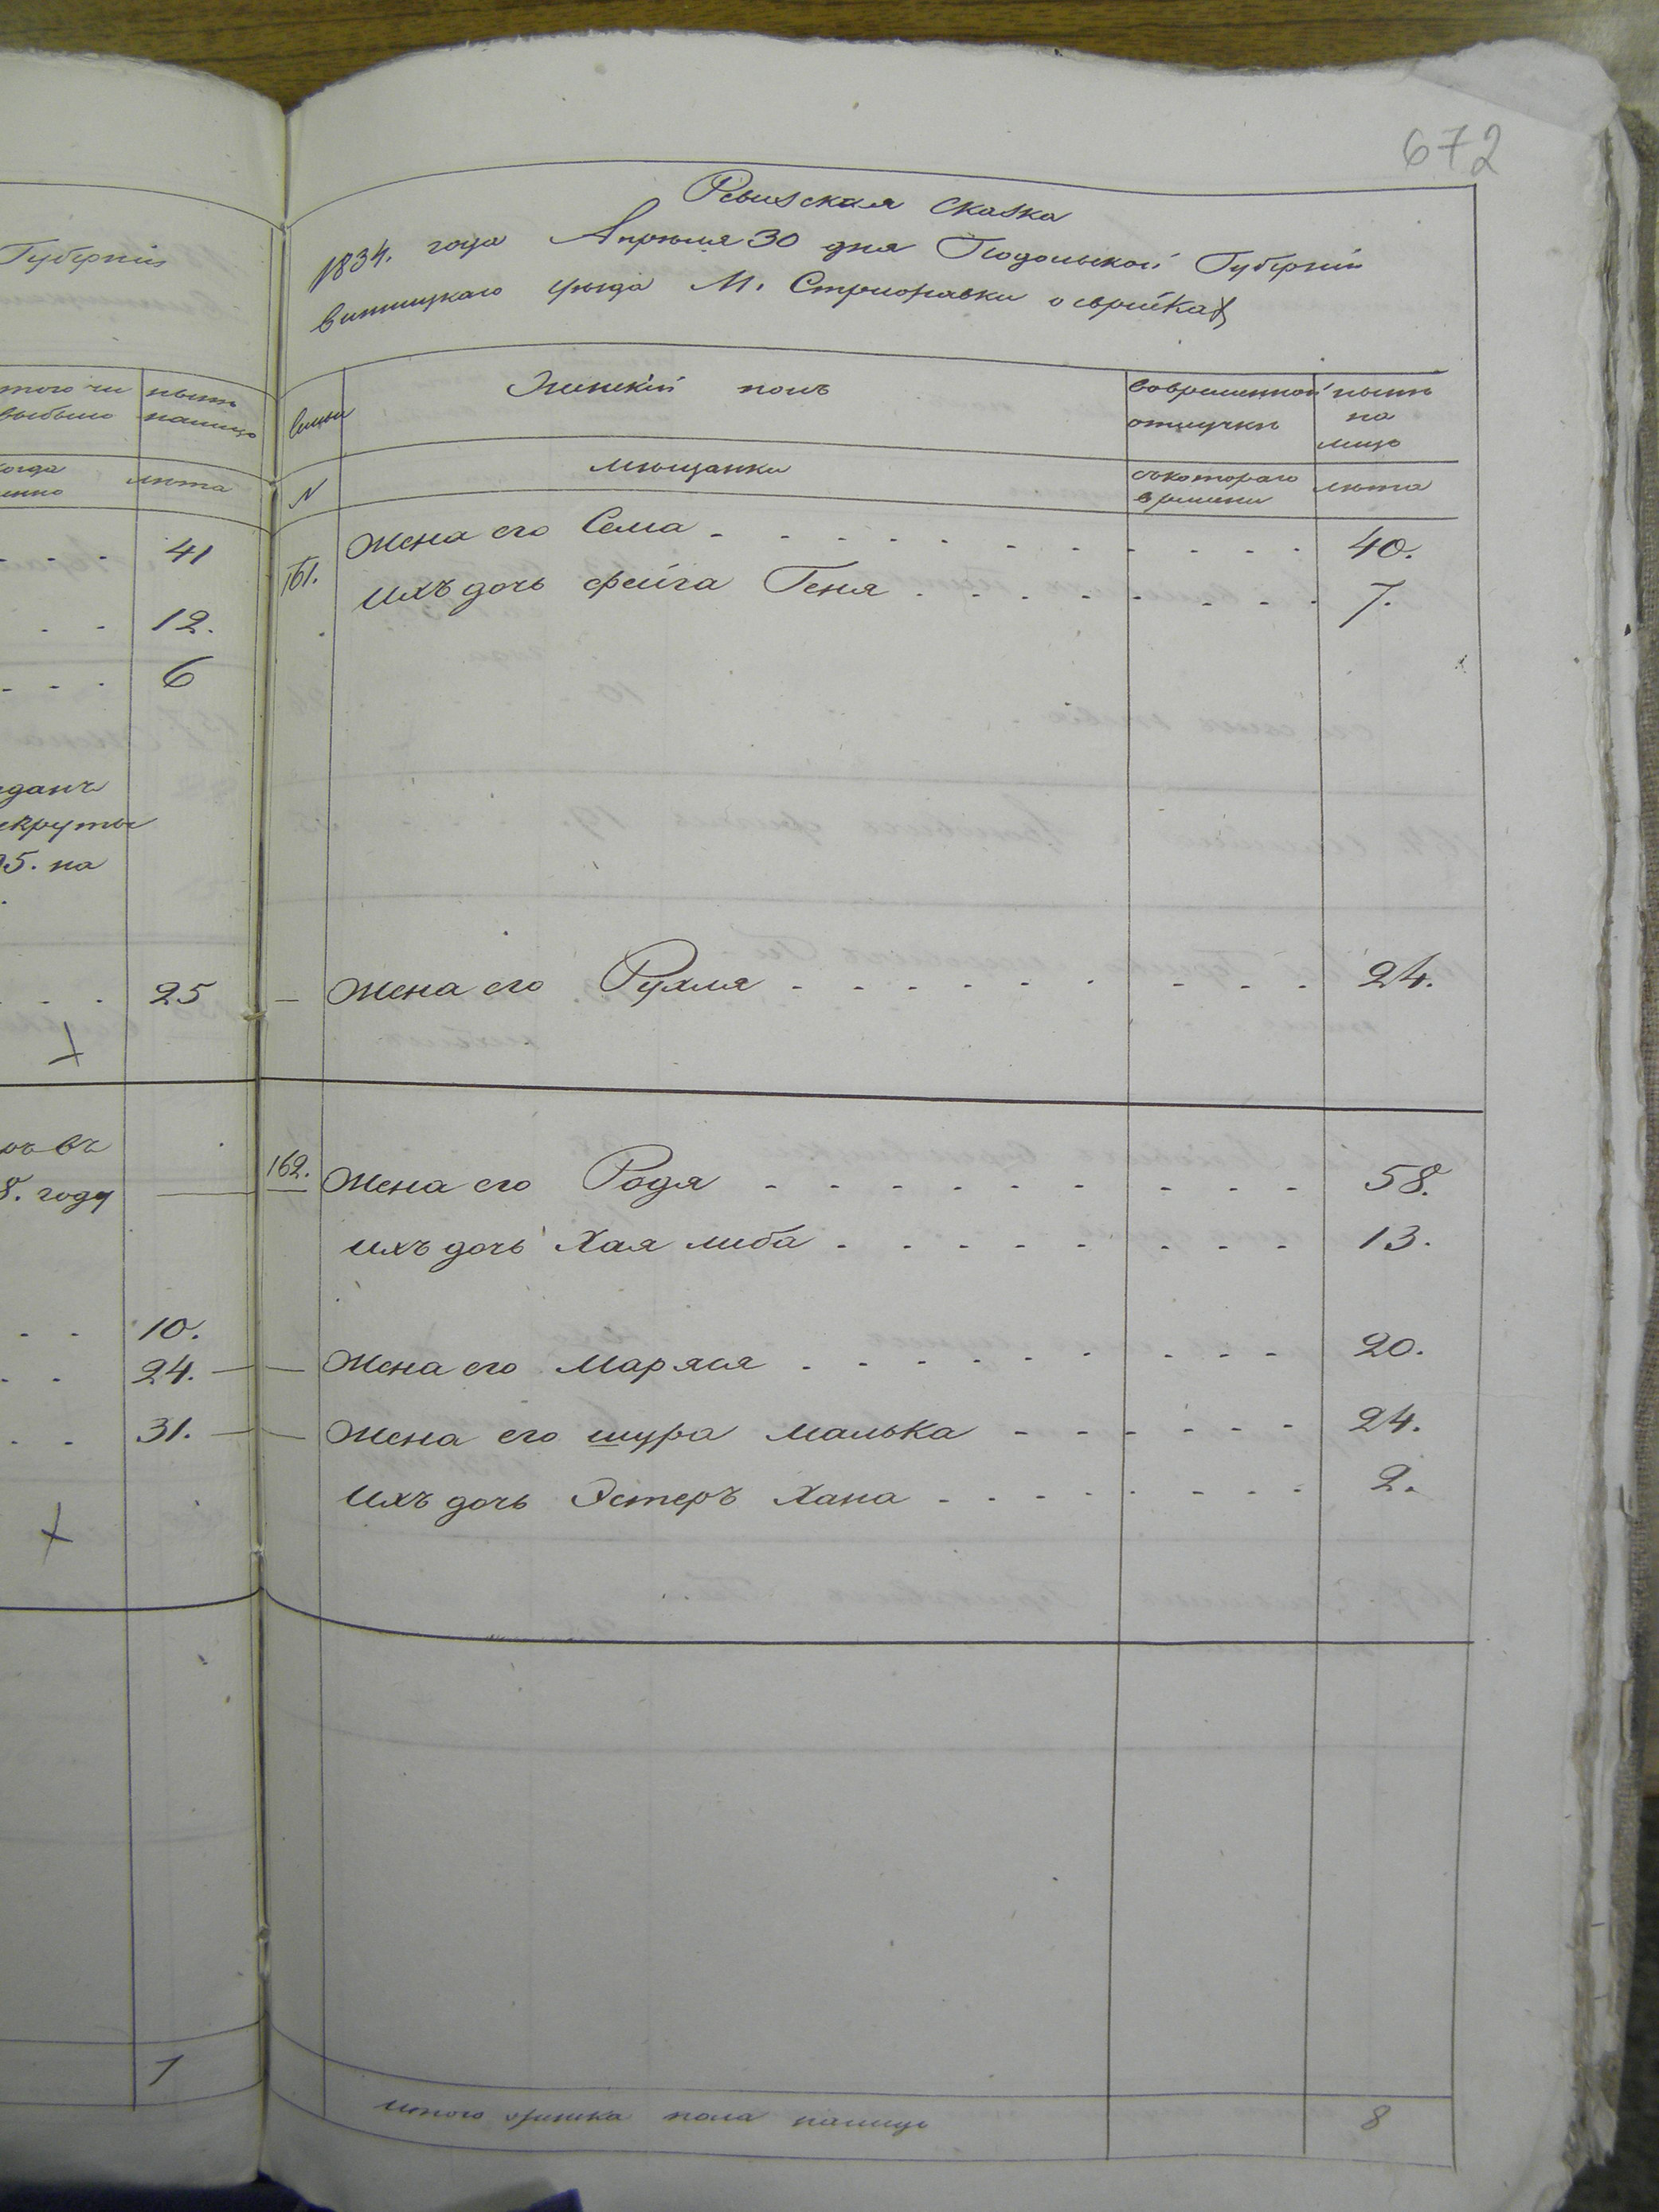 Губерніи
того чи
выбыло
нынѣ
налицо
когда
имянно
лѣта
41
12.
6
отданъ
рекруты
25. на
25
въ
8. году
10.
24.
31.
7
672
Ревизская сказка
1834. года Апрѣля 30 дня Подольской Губерніи
Винницкаго уѣзда М. Стрижавки о еврейкахъ
Семьи
Женскій полъ
вовременной
отлучки
нынѣ
на
лицо
N
мѣщанки
съкотораго
времени
лѣта
161.
Жена его Сема 40.
Ихъ дочь фейга Геня 7.
Жена его Рухля 24.
162. Жена его Родя 58.
Ихъ дочь Хая либа 13.
Жена его Маряся 20.
Жена его шура малька 24.
Ихъ дочь Эстеръ Хана 2.
Итого женска пола налицо 8